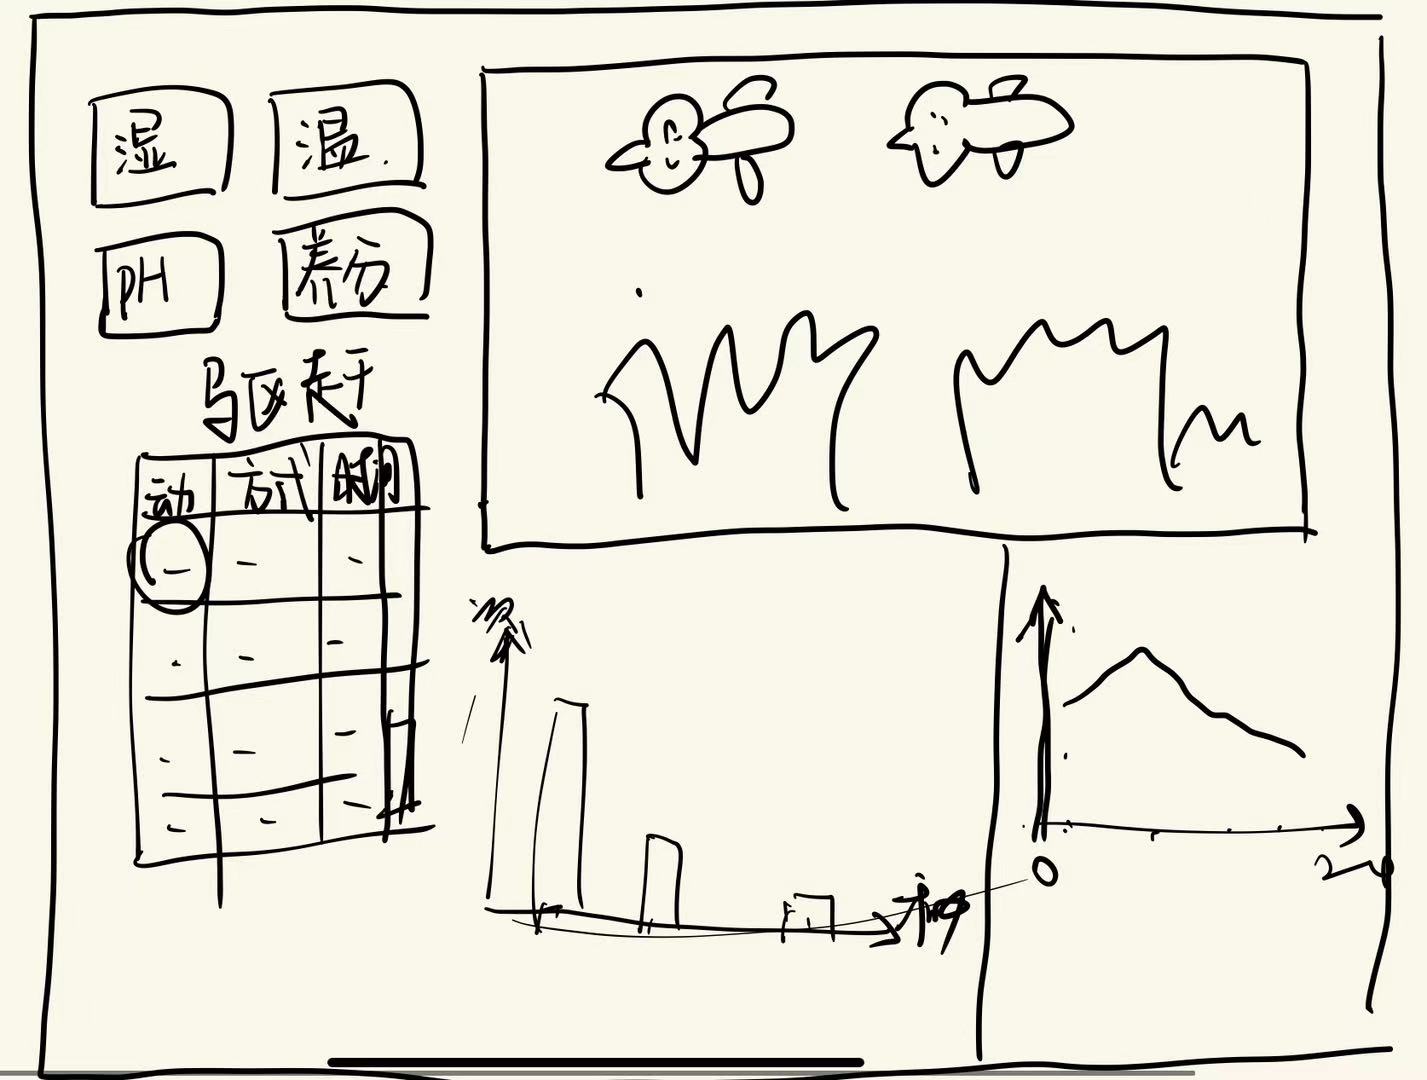 湿 温
PH 养分
驱赶
动 方式 时间
0
24